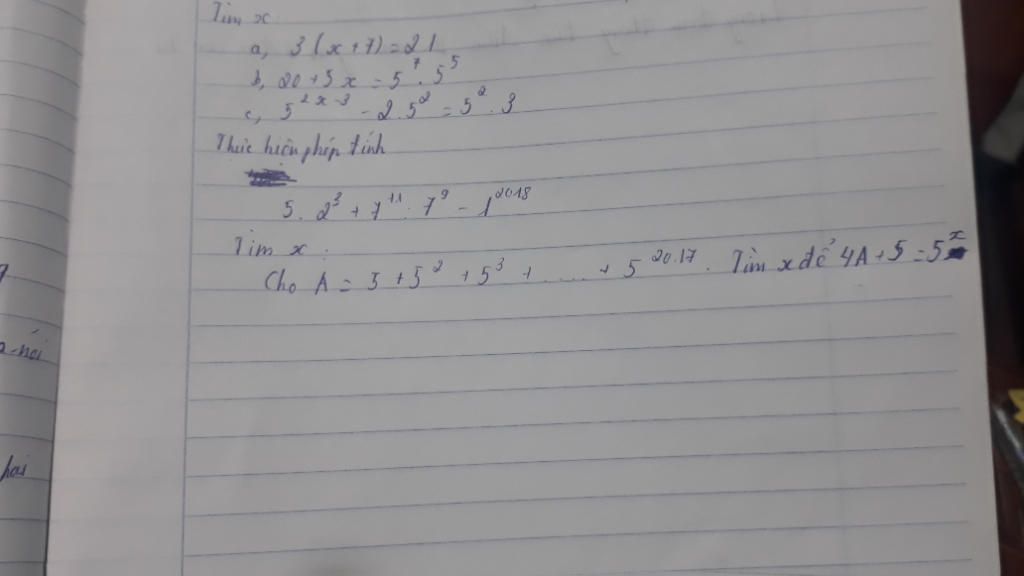 Tìm x
a, 3(x+7)=21
b, 20+5x = 5⁷. 5⁵
c, 5²ˣ⁻³ - 2.5² = 5².3
Thực hiện phép tính
5. 2³ + 7¹¹: 7⁹ - 1²⁰¹⁸
Tìm x :
Cho A = 5 + 5² + 5³ + ..... + 5²⁰·¹⁷. Tìm x để 4A+5=5ˣ
nói
hai